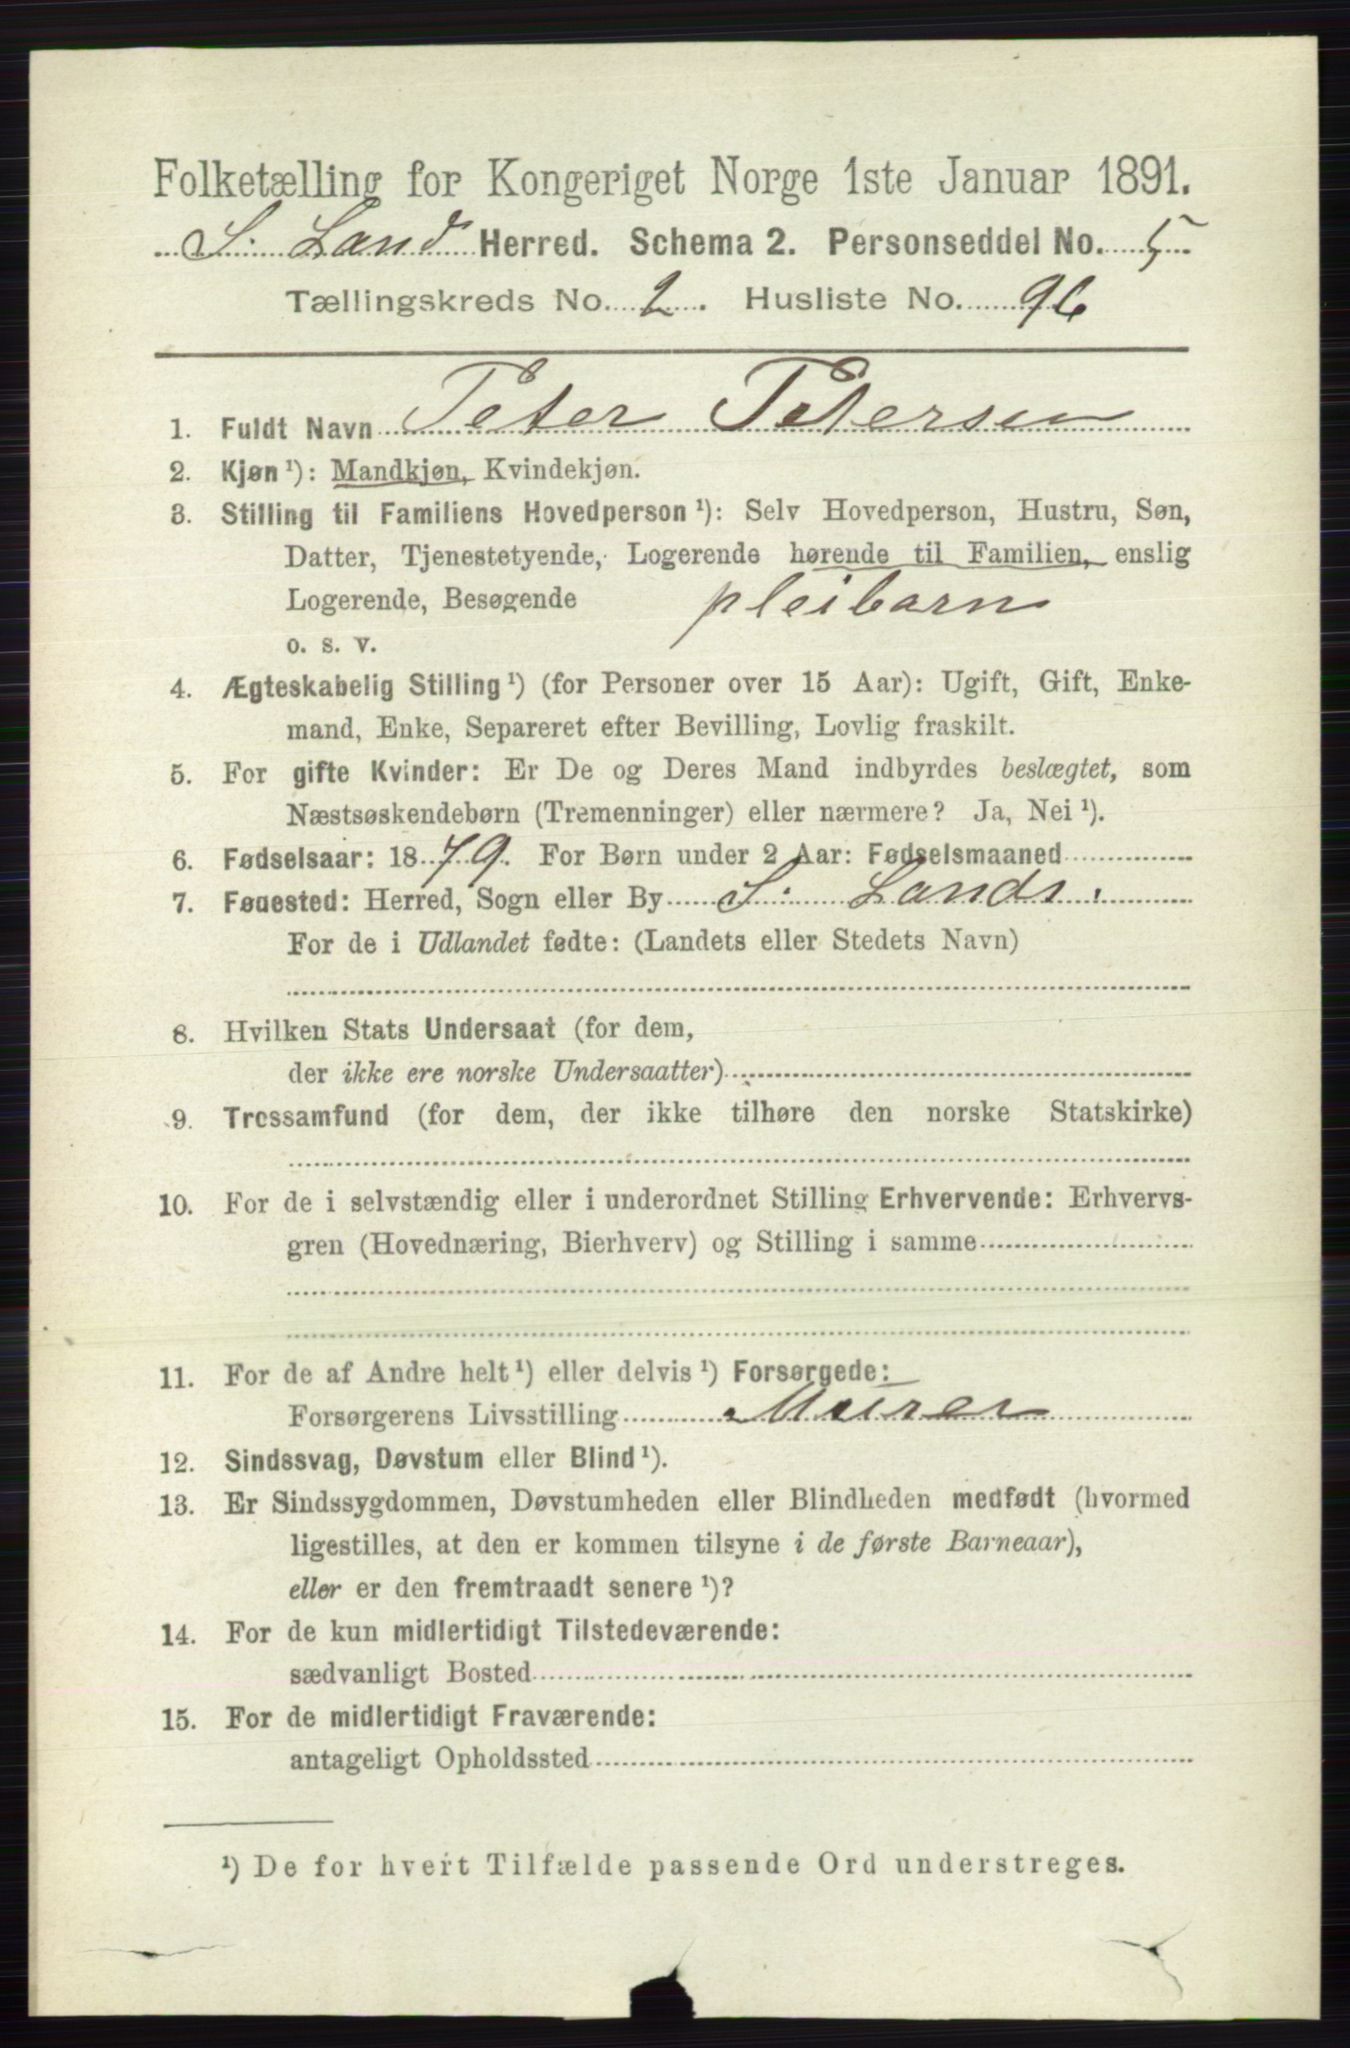 Folketælling for Kongeriget Norge 1ste Januar 1891.
S. Land Herred. Schema 2. Personseddel No. 5
Tællingskreds No. 2. Husliste No. 96
1. Fuldt Navn Peter Petersen
2. Kjøn ¹): Mandkjøn, Kvindekjøn.
3. Stilling til Familiens Hovedperson ¹): Selv Hovedperson, Hustru, Søn,
Datter, Tjenestetyende, Logerende hørende til Familien, enslig
Logerende, Besøgende pleibarn
o. s. v.
4. Ægteskabelig Stilling ¹) (for Personer over 15 Aar): Ugift, Gift, Enke-
mand, Enke, Separeret efter Bevilling, Lovlig fraskilt.
5. For gifte Kvinder: Er De og Deres Mand indbyrdes beslægtet, som
Næstsøskendebørn (Tremenninger) eller nærmere? Ja, Nei ¹).
6. Fødselsaar: 1879. For Børn under 2 Aar: Fødselsmaaned
7. Fødested: Herred, Sogn eller By S. Lands.
For de i Udlandet fødte: (Landets eller Stedets Navn)
8. Hvilken Stats Undersaat (for dem,
der ikke ere norske Undersaatter)
9. Trossamfund (for dem, der ikke tilhøre den norske Statskirke)
10. For de i selvstændig eller i underordnet Stilling Erhvervende: Erhvervs-
gren (Hovednæring, Bierhverv) og Stilling i samme
11. For de af Andre helt ¹) eller delvis ¹) Forsørgede:
Forsørgerens Livsstilling Murer
12. Sindssvag, Døvstum eller Blind ¹).
13. Er Sindssygdommen, Døvstumheden eller Blindheden medfødt (hvormed
ligestilles, at den er kommen tilsyne i de første Barneaar),
eller er den fremtraadt senere ¹)?
14. For de kun midlertidigt Tilstedeværende:
sædvanligt Bosted
15. For de midlertidigt Fraværende:
antageligt Opholdssted
¹) De for hvert Tilfælde passende Ord understreges.